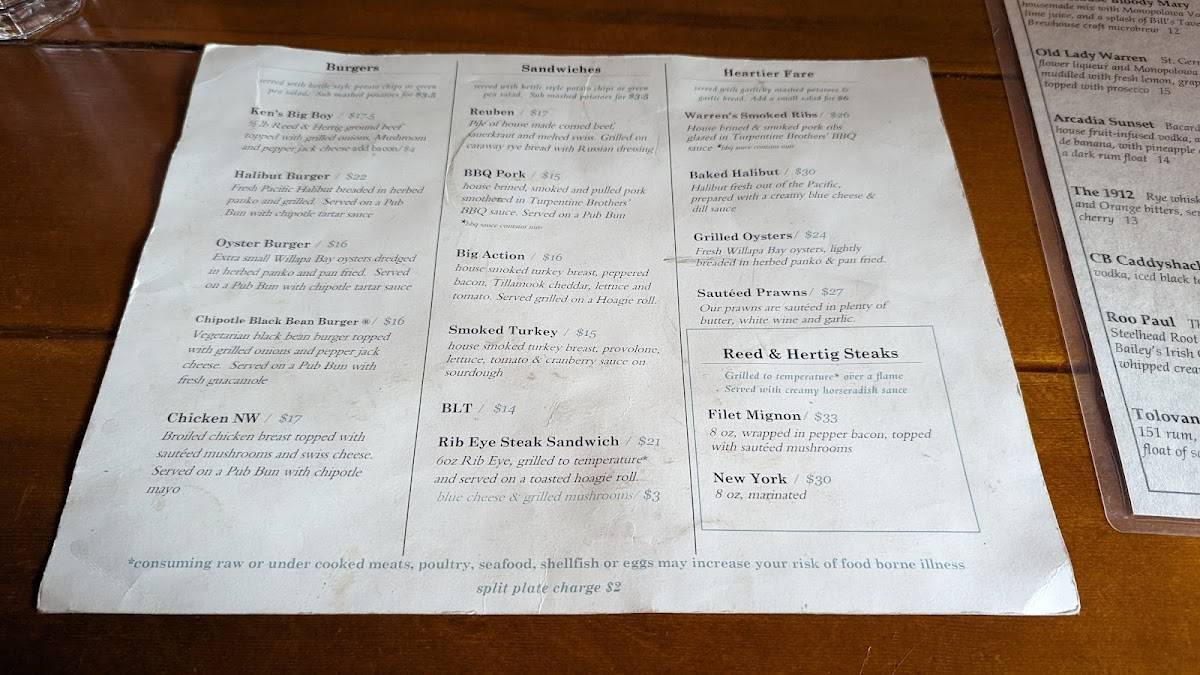 Burgers
served with kettle style potato chips or green
pea salad. Sub mashed potatoes for $3.5
Ken's Big Boy / $17.5
½ lb Reed & Hertig ground beef
topped with grilled onions. Mushroom
and pepper jack cheese add bacon/$4
Halibut Burger / $22
Fresh Pacific Halibut breaded in herbed
panko and grilled. Served on a Pub
Bun with chipotle tartar sauce
Oyster Burger / $16
Extra small Willapa Bay oysters dredged
in herbed panko and pan fried. Served
on a Pub Bun with chipotle tartar sauce
Chipotle Black Bean Burger ®/ $16
Vegetarian black bean burger topped
with grilled onions and pepper jack
cheese. Served on a Pub Bun with
fresh guacamole
Chicken NW / $17
Broiled chicken breast topped with
sautéed mushrooms and swiss cheese.
Served on a Pub Bun with chipotle
mayo
Sandwiches
served with kettle style potato chips or green
pea salad. Sub mashed potatoes for $3.5
Reuben / $17
Pile of house made corned beef,
sauerkraut and melted swiss. Grilled on
caraway rye bread with Russian dressing
BBQ Pork / $15
house brined, smoked and pulled pork
smothered in Turpentine Brothers'
BBQ sauce. Served on a Pub Bun
*bbq sauce contains nuts
Big Action / $16
house smoked turkey breast, peppered
bacon, Tillamook cheddar, lettuce and
tomato. Served grilled on a Hoagie roll.
Smoked Turkey / $15
house smoked turkey breast, provolone,
lettuce, tomato & cranberry sauce on
sourdough
BLT / $14
Rib Eye Steak Sandwich / $21
6oz Rib Eye, grilled to temperature*
and served on a toasted hoagie roll
blue cheese & grilled mushrooms/ $3
Heartier Fare
served with garlicky mashed potatoes &
garlic bread. Add a small salad for $6
Warren's Smoked Ribs/ $26
House brined & smoked pork ribs
glazed in Turpentine Brothers' BBQ
sauce *bbq sauce contains nuts
Baked Halibut / $30
Halibut fresh out of the Pacific,
prepared with a creamy blue cheese &
dill sauce
Grilled Oysters/ $24
Fresh Willapa Bay oysters, lightly
breaded in herbed panko & pan fried.
Sautéed Prawns/ $27
Our prawns are sautéed in plenty of
butter, white wine and garlic.
Reed & Hertig Steaks
Grilled to temperature* over a flame
Served with creamy horseradish sauce
Filet Mignon/ $33
8 oz, wrapped in pepper bacon, topped
with sautéed mushrooms
New York / $30
8 oz, marinated
*consuming raw or under cooked meats, poultry, seafood, shellfish or eggs may increase your risk of food borne illness
split plate charge $2
Bloody Mary
housemade mix with Monopolowa
lime juice, and a splash of Bill's
Brewhouse craft microbrew 12
Old Lady Warren St.
flower liqueur and Monopolowa
muddled with fresh lemon,
topped with prosecco 15
Arcadia Sunset
house fruit-infused vodka,
de banana, with pineapple
a dark rum float 14
The 1912 Rye
and Orange bitters,
cherry 13
CB Caddyshack
vodka, iced black
Roo Paul
Steelhead Root
Bailey's Irish
whipped
151 rum,
float of